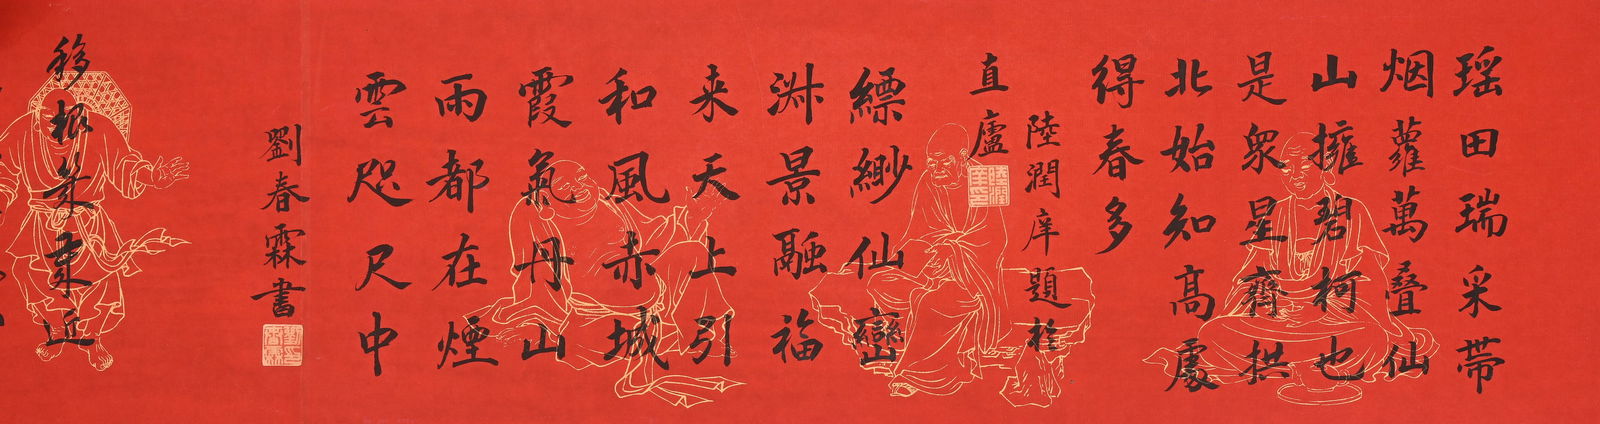 瑶田瑞采带
烟蘿萬叠仙
山擁碧柯也
是衆星齊拱
北始知髙處
得春多
陸潤庠題於
直廬
縹緲仙巒
淑景融福
来天上引
和風赤城
霞氣丹山
雨都在煙
雲咫尺中
劉春霖書
移根近